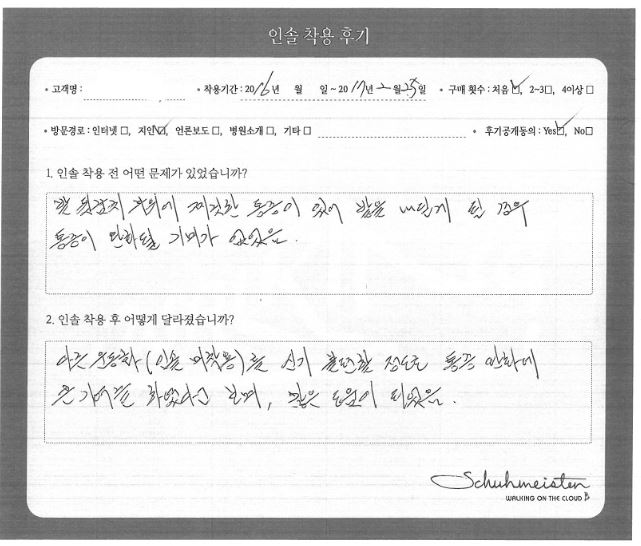 인솔 착용 후기
• 고객명: • 착용기간: 2016년 월 일 ~ 2017년 2월 25일 • 구매 횟수: 처음☑, 2~3□, 4이상□
• 방문경로: 인터넷□, 지인☑, 언론보도□, 병원소개□, 기타□ • 후기공개동의: Yes☑, No□
1. 인솔 착용 전 어떤 문제가 있었습니까?
발 뒷꿈치 부위에 찌릿한 통증이 있어 발을 내딛게 될 경우
통증이 완화될 기미가 없었음.
2. 인솔 착용 후 어떻게 달라졌습니까?
다른 운동화(인솔 미착용)를 신기 불편할 정도로 통증 완화에
큰 기여를 하였다고 보며, 많은 도움이 되었음.
Schuhmeister
WALKING ON THE CLOUD B